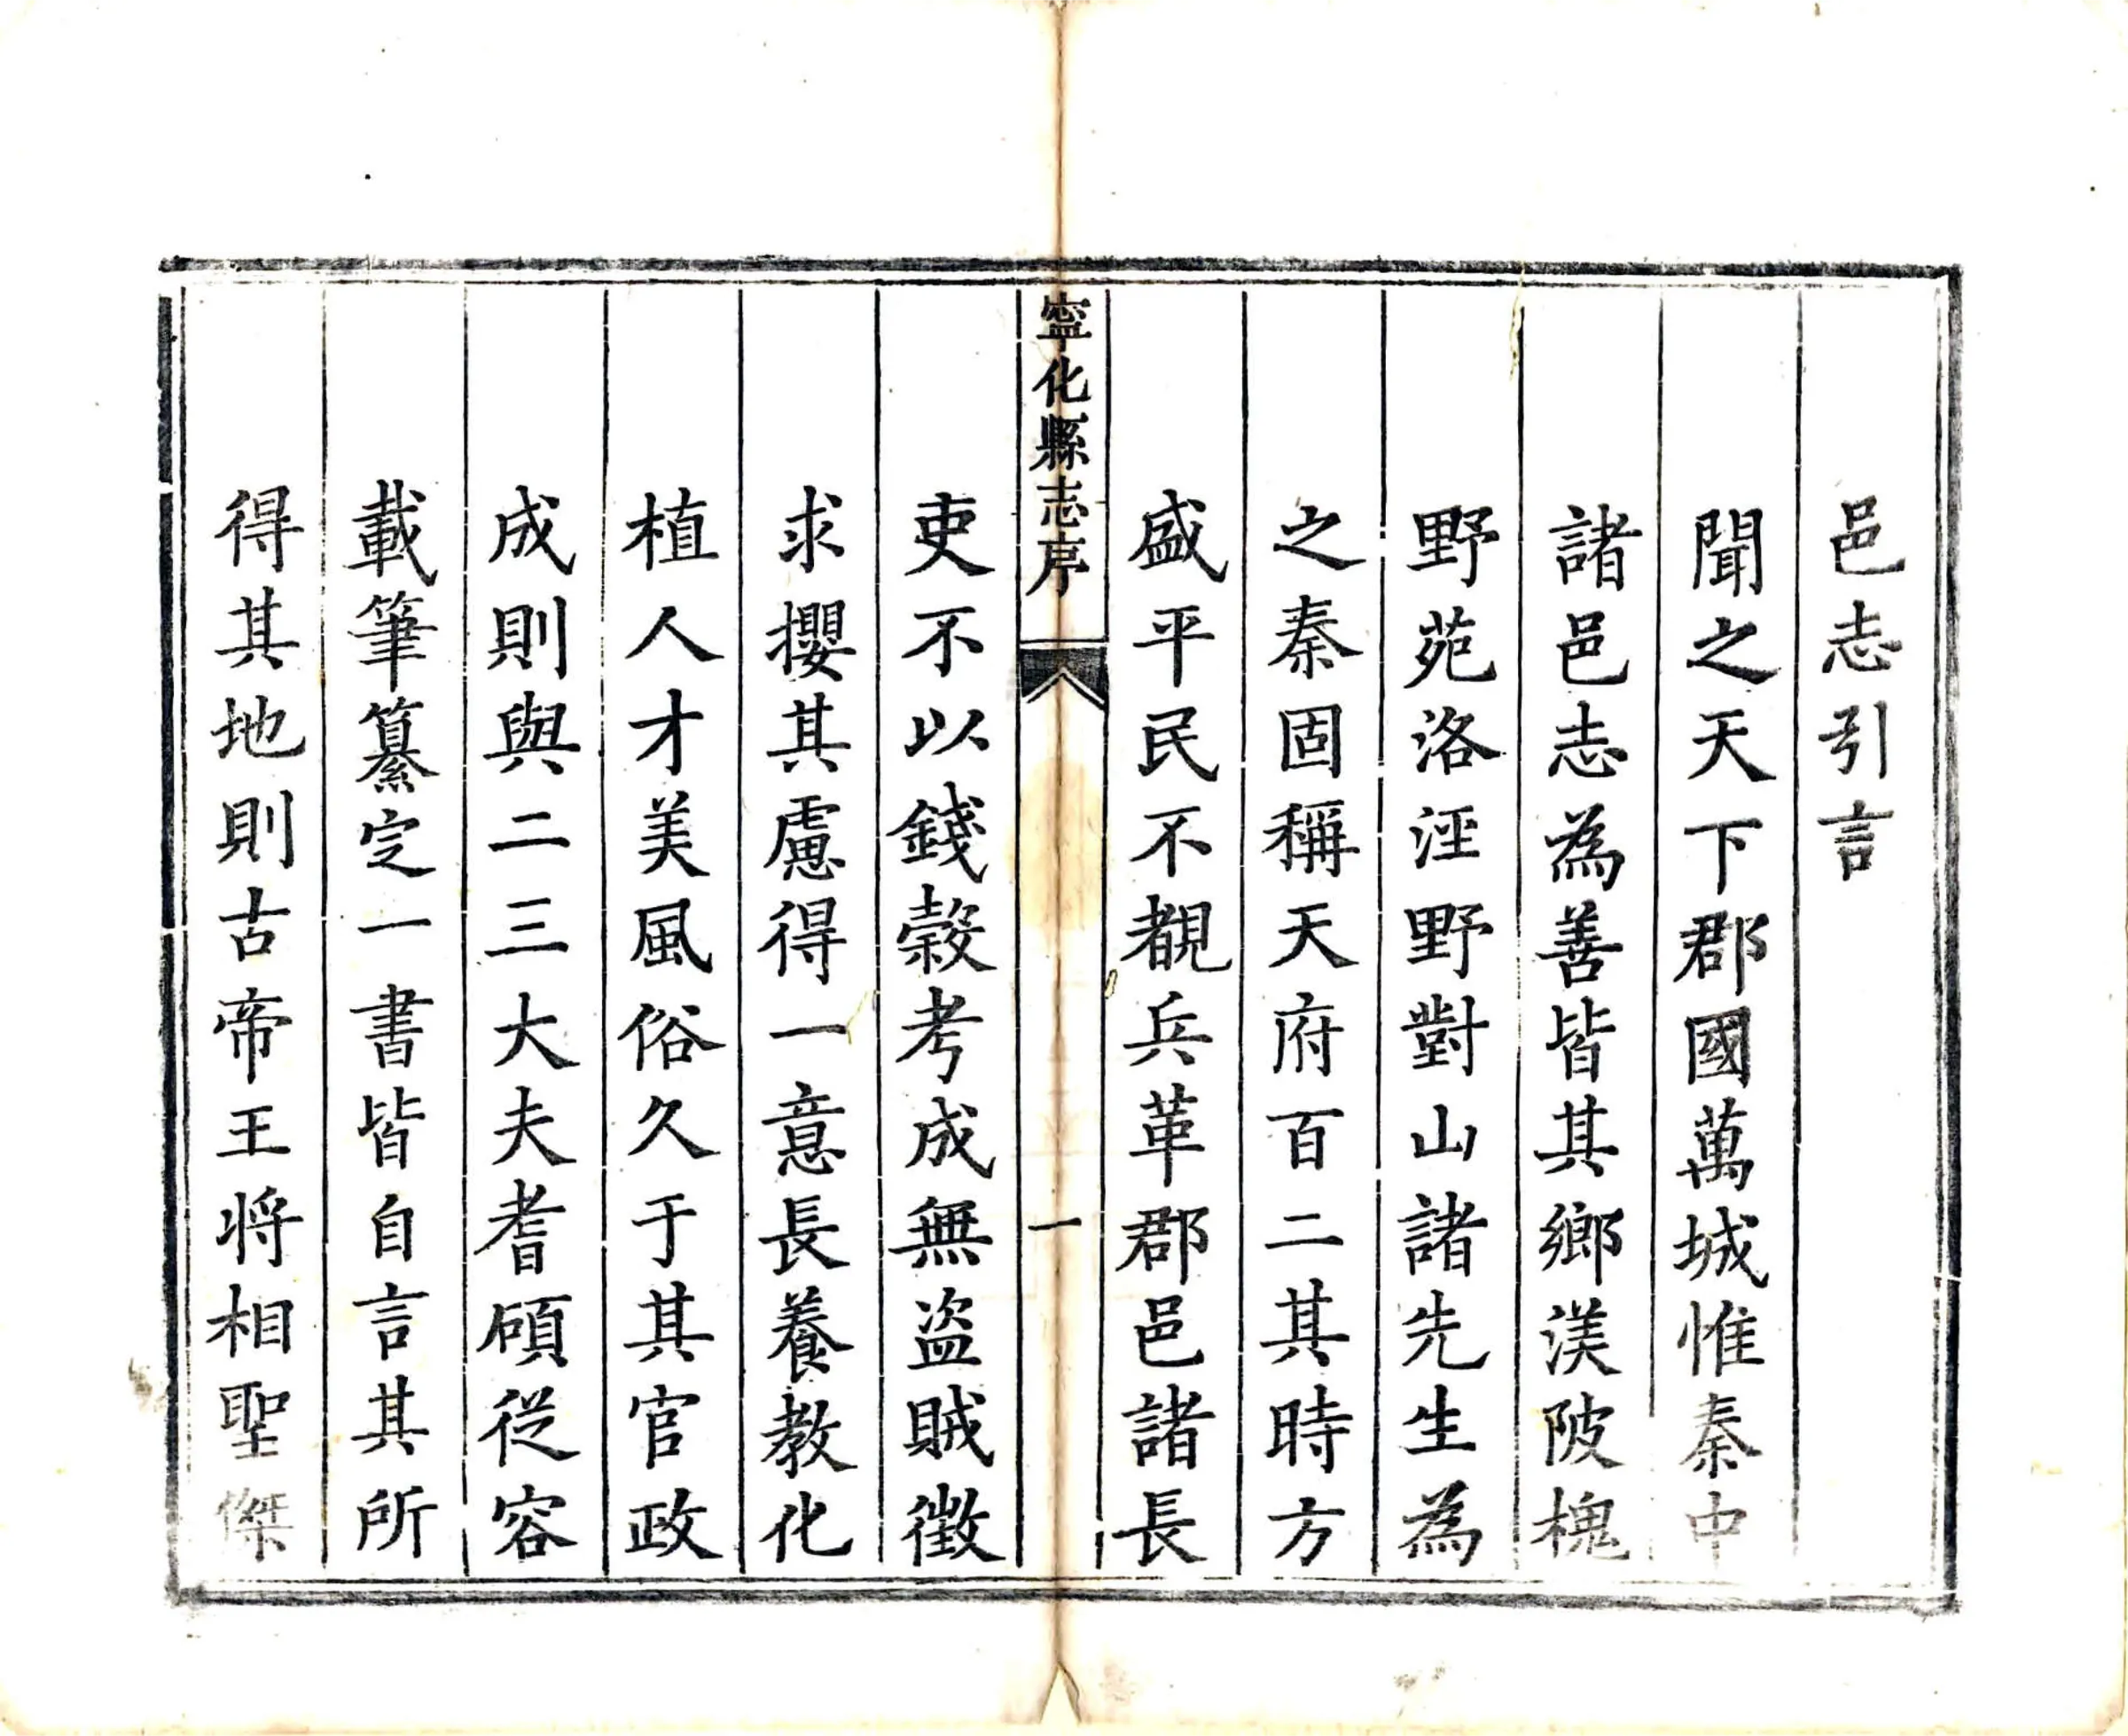 邑志引言
聞之天下郡國萬城惟秦中
諸邑志為善皆其鄉渼陂槐
野苑洛涇野對山諸先生為
之秦固稱天府百二其時方
盛平民不覩兵革郡邑諸長
寧化縣志序
一
吏不以錢穀考成無盜賊徵
求攖其慮得一意長養教化
植人才美風俗久于其官政
成則與二三大夫耆碩從容
載筆纂定一書皆自言其所
得其地則古帝王将相聖傑